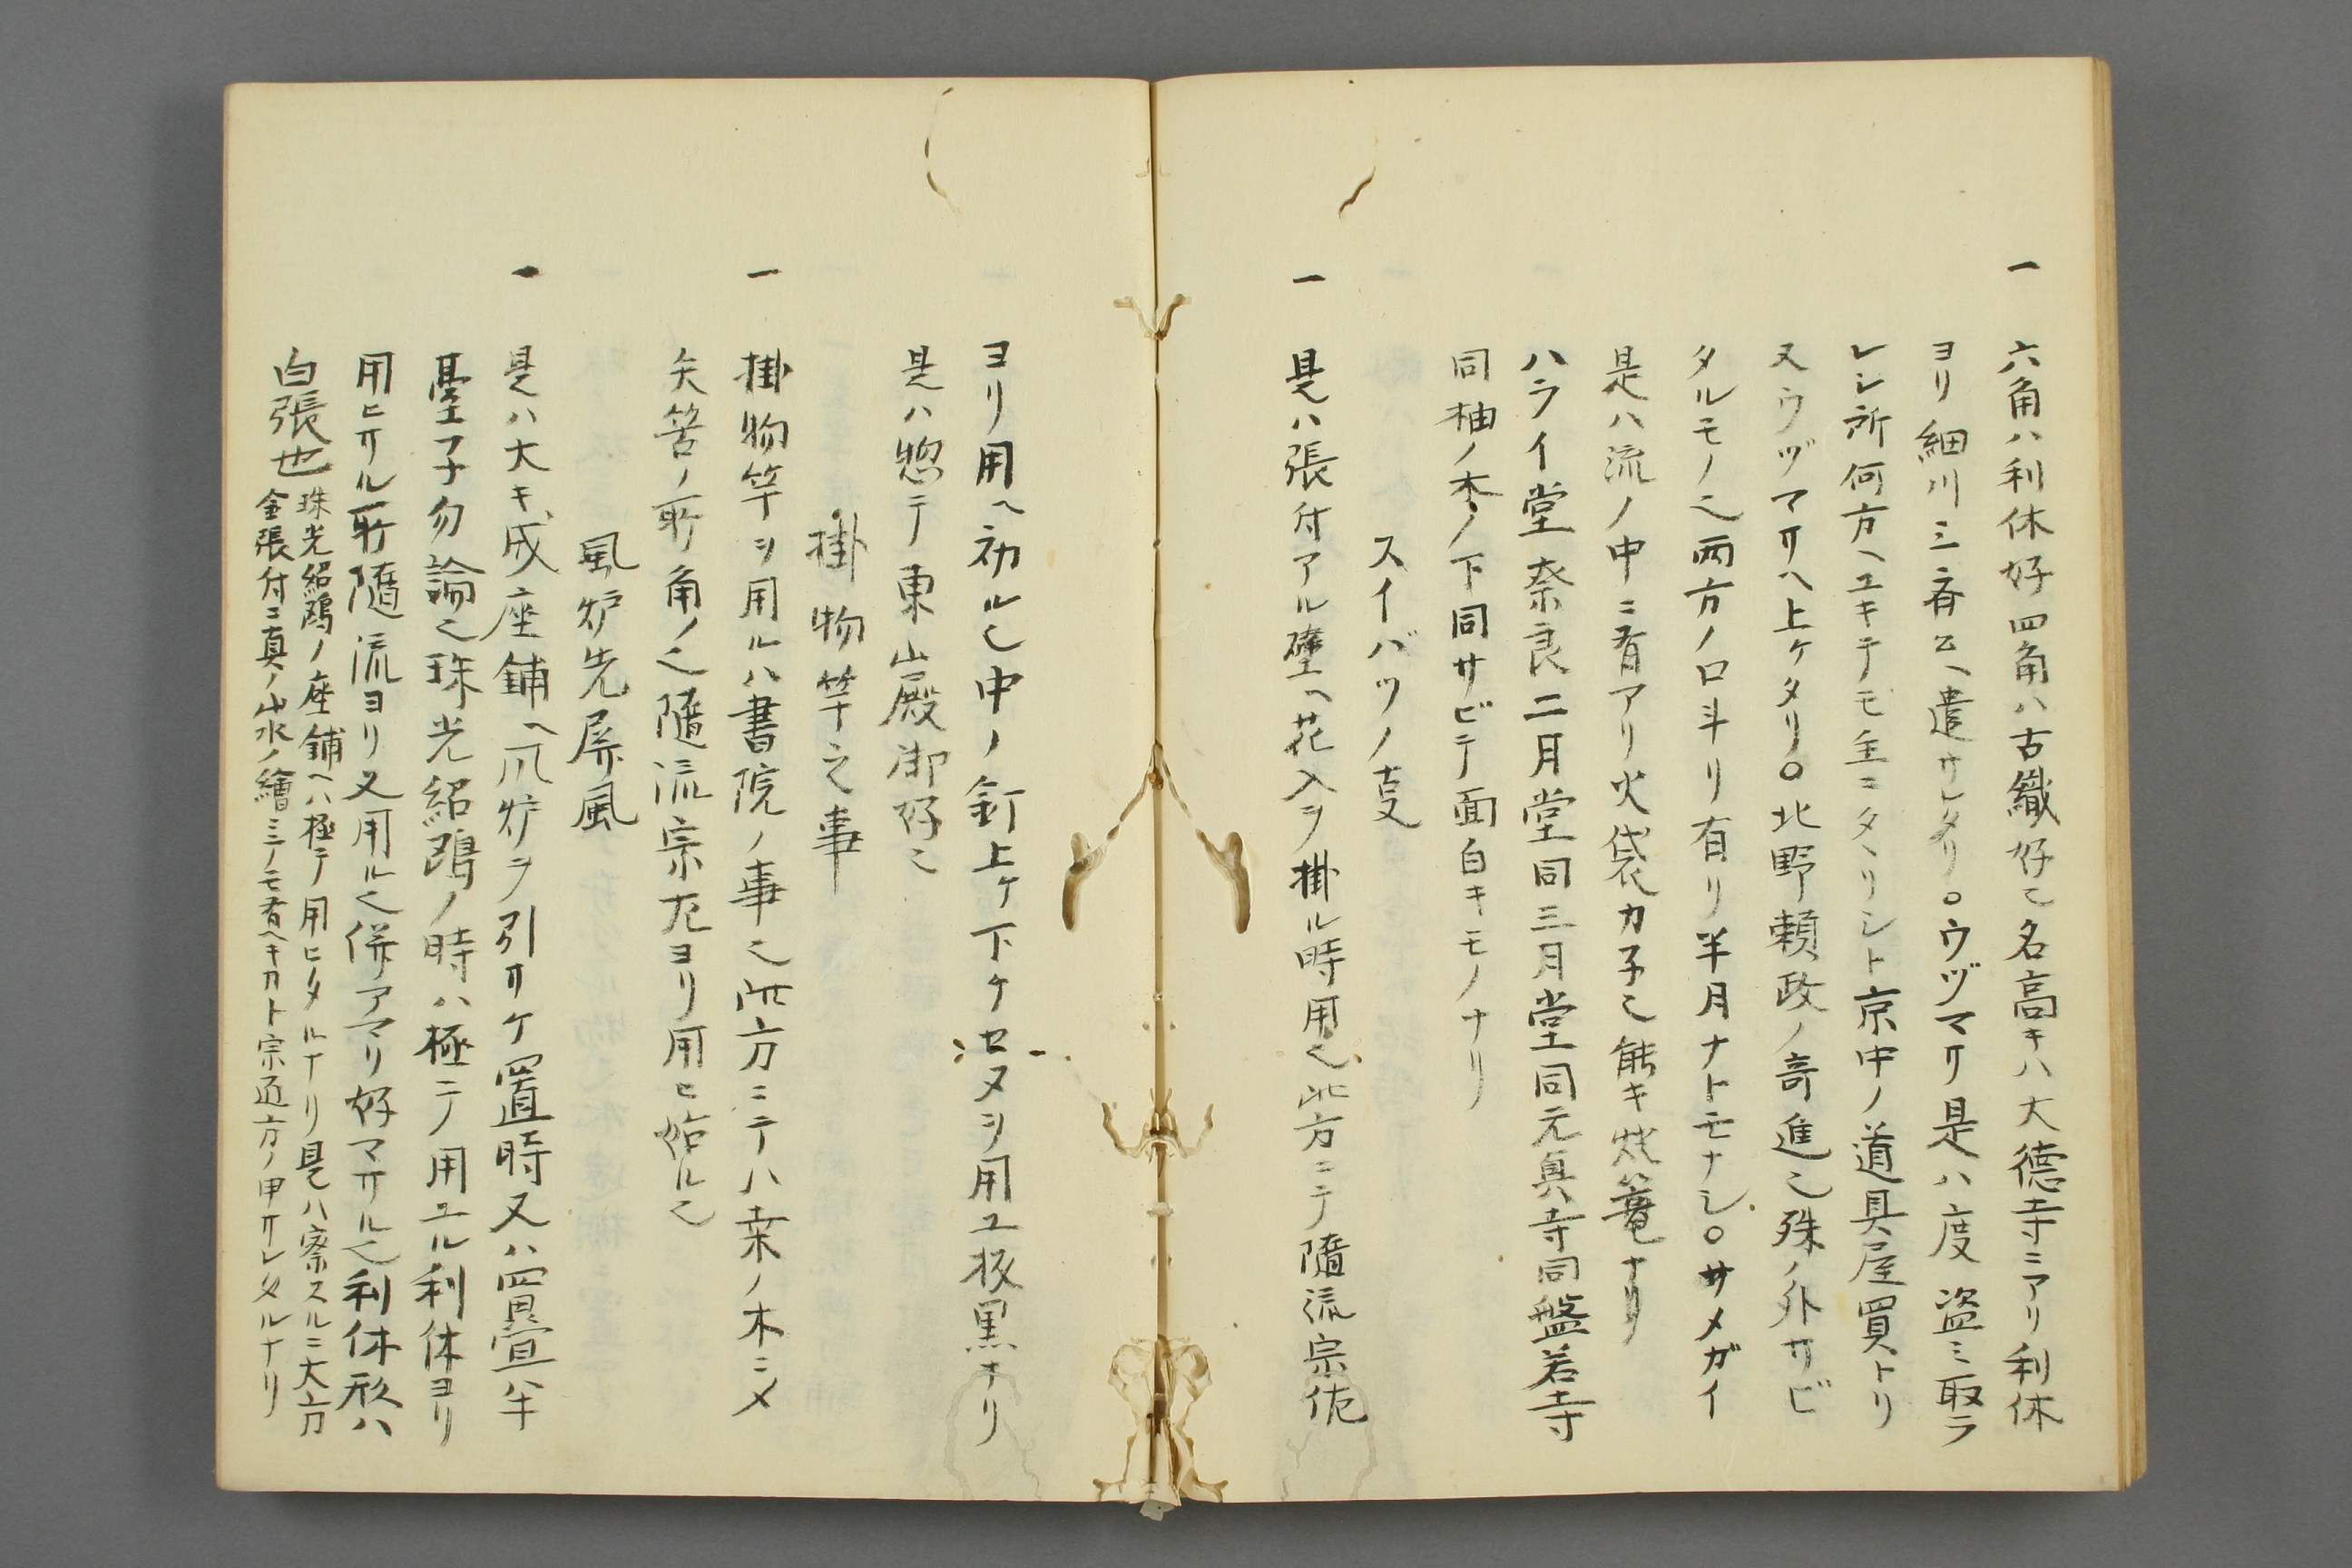 一 六角ハ利休好四角ハ古織好也名高キハ大徳寺ニアリ利休
ヨリ細川三斎公ヘ遣サレタリ○ウヅマサ是ハ度〻盗ミ取ラ
レシ所何方ヘユキテモ主ニタヽリシト京中ノ道具屋買トリ
又ウヅマサヘ上ケタリ○北野頼政ノ寄進也殊ノ外サビ
タルモノ也両方ノ口斗リ有リ半月ナトモナシ○サメガイ
是ハ流ノ中ニ有アリ火袋カ子也能キ灯籠ナリ
ハライ堂奈良二月堂同三月堂同元真寺同盤若寺
同柚ノ木ノ下同サビテ面白キモノナリ
スイバツノ㕝
一 是ハ張付アル壁ヘ花入ヲ掛ル時用也此方ニテ随流宗佐
ヨリ用ヘ初ル也中ノ釘上ケ下ケセヌヲ用ユ板黒ナリ
是ハ惣テ東山殿御好也
掛物竿之事
一 掛物竿ヲ用ルハ書院ノ事也此方ニテハ桒ノ木ニメ
矢筈ノ所角ノ也随流宗左ヨリ用ヒ始ル也
風炉先屏風
一 是ハ大キ成座鋪ヘ爪炉ヲ引サケ置時又ハ四畳半
臺子勿論也珠光紹鴎ノ時ハ極テ用ユル利休ヨリ
用ヒサル所随流ヨリ又用ル也併アマリ好マサル也利休形ハ
白張也 珠光紹鴎ノ座鋪ヘハ極テ用ヒタルナリ是ハ察スルニ大方
金張付ニ真ノ山水ノ繪ニノモ有ヘキカト宗迺方ノ申サレタルナリ